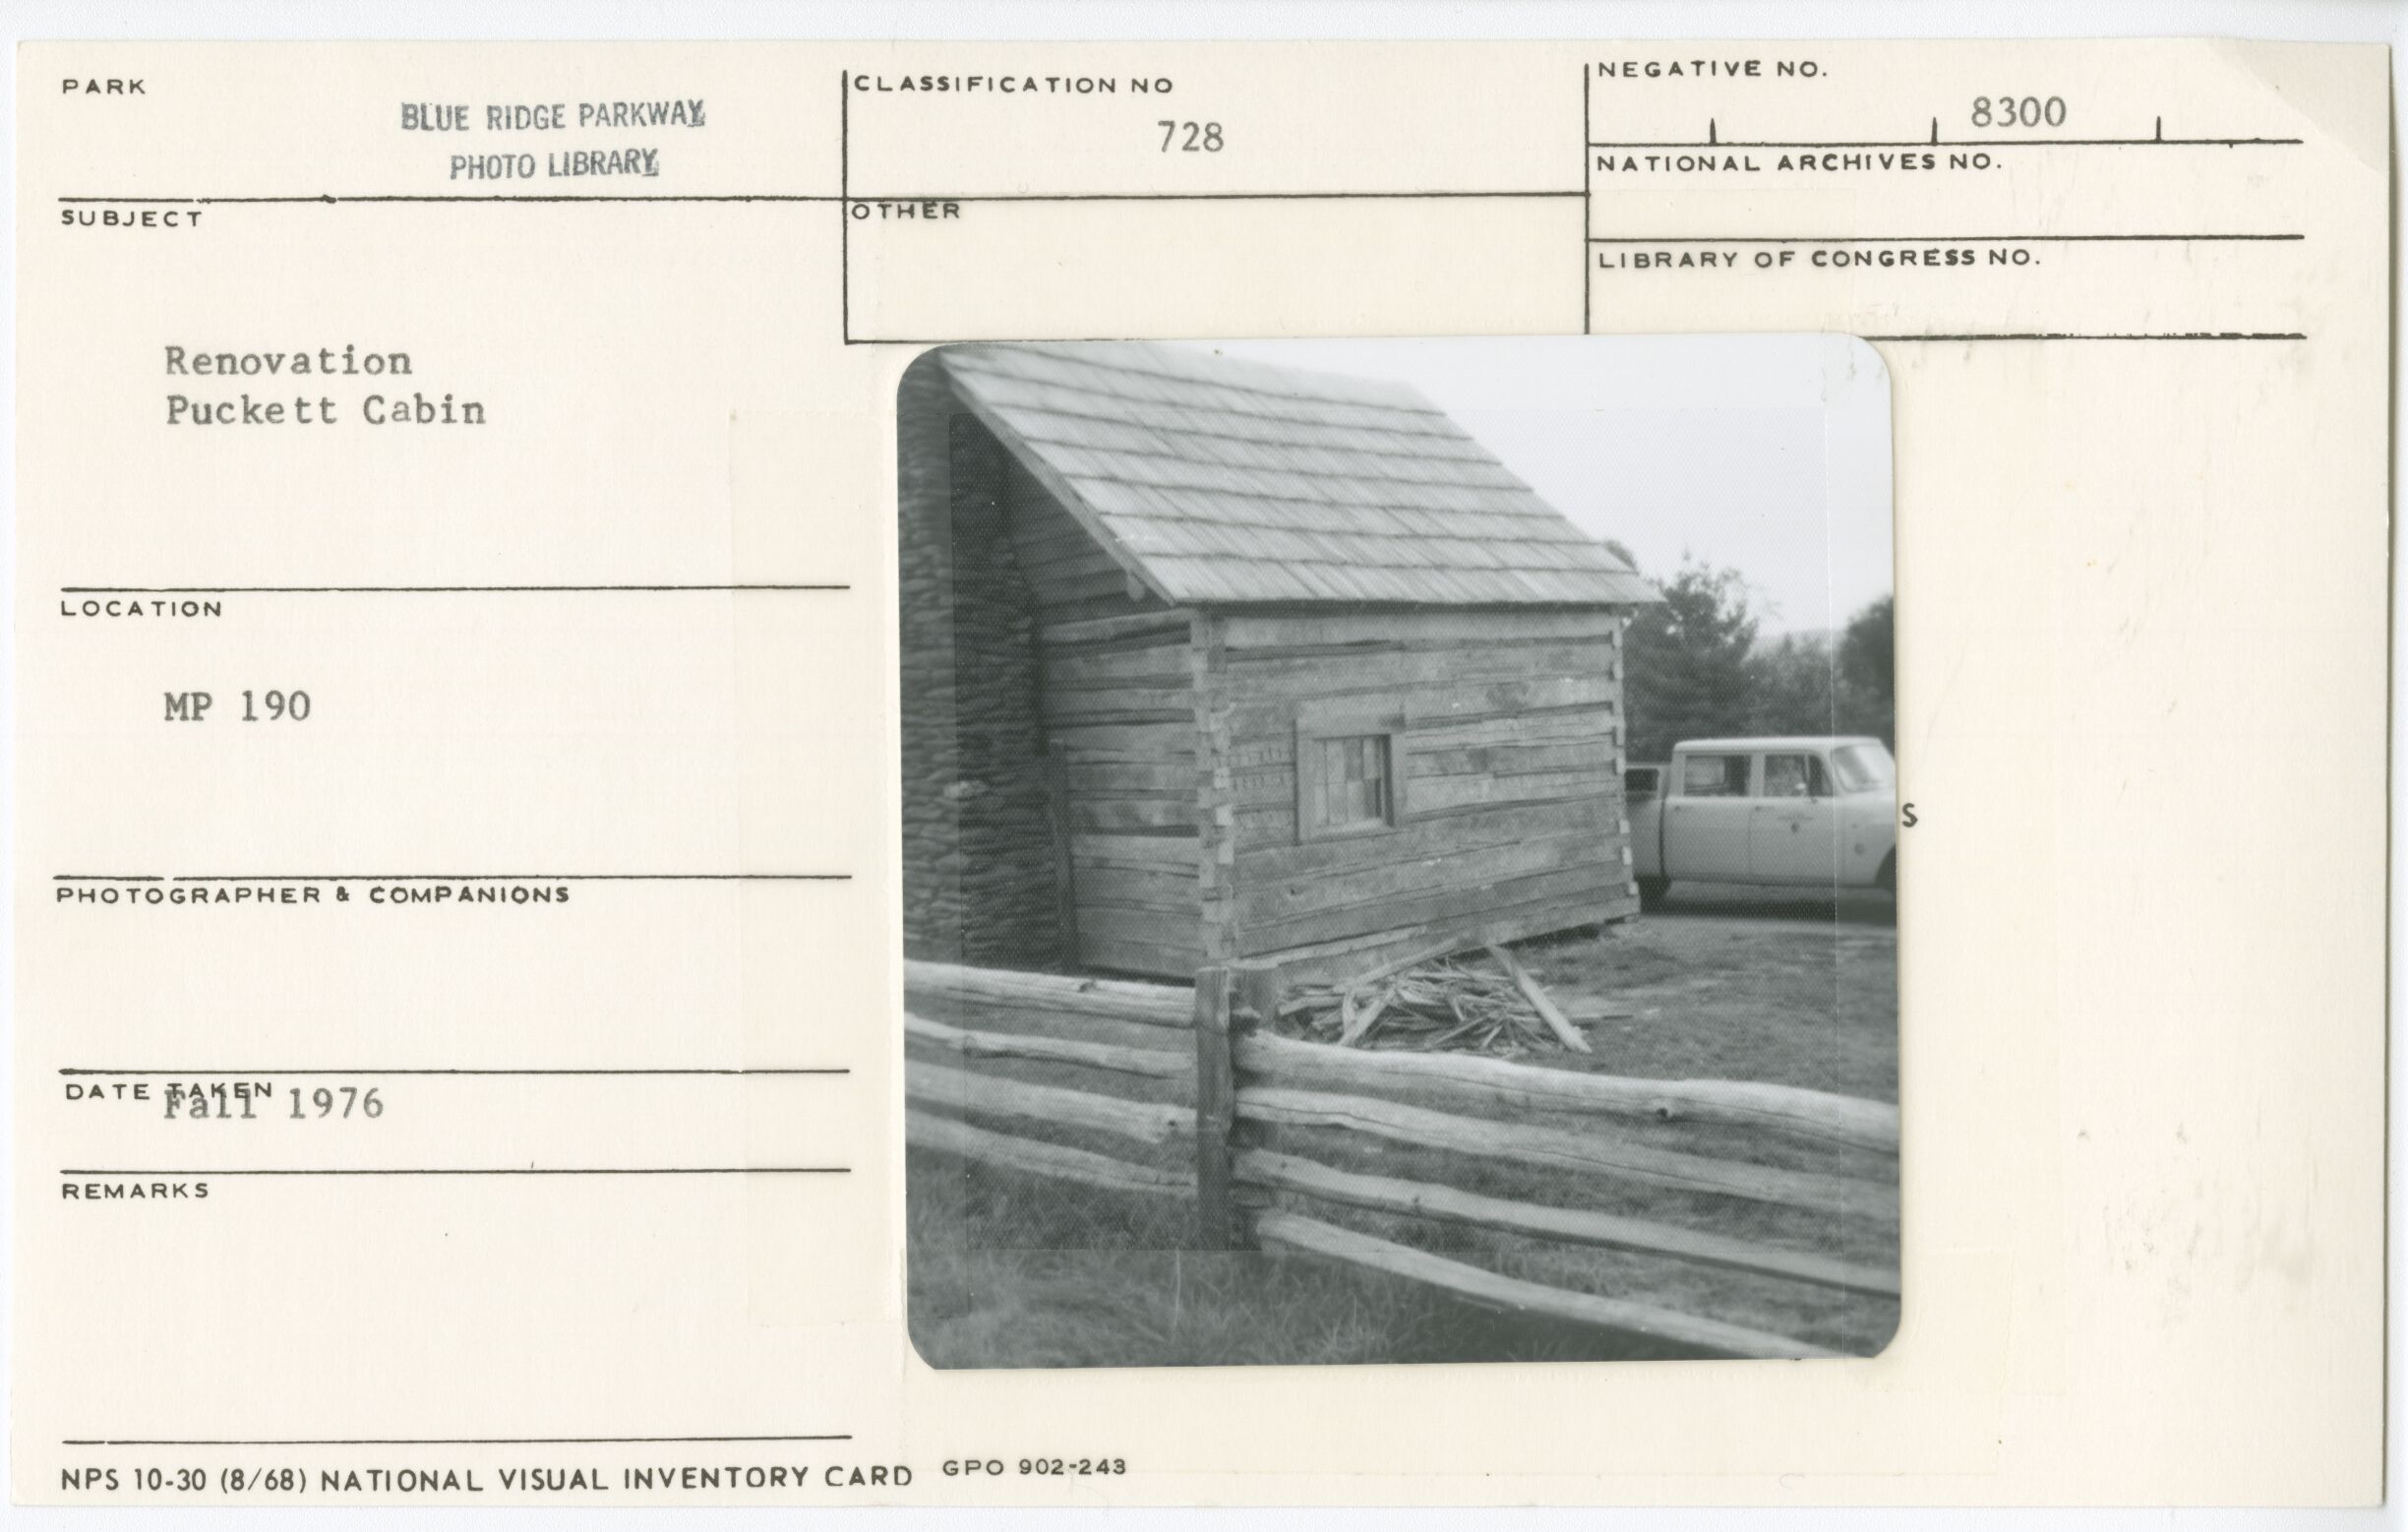 PARK
BLUE RIDGE PARKWAY
PHOTO LIBRARY
CLASSIFICATION NO
728
NEGATIVE NO.
8300
NATIONAL ARCHIVES NO.
LIBRARY OF CONGRESS NO.
OTHER
SUBJECT
Renovation
Puckett Cabin
LOCATION
MP 190
S
PHOTOGRAPHER & COMPANIONS
DATE TAKEN
Fall 1976
REMARKS
NPS 10-30 (8/68) NATIONAL VISUAL INVENTORY CARD GPO 902-243